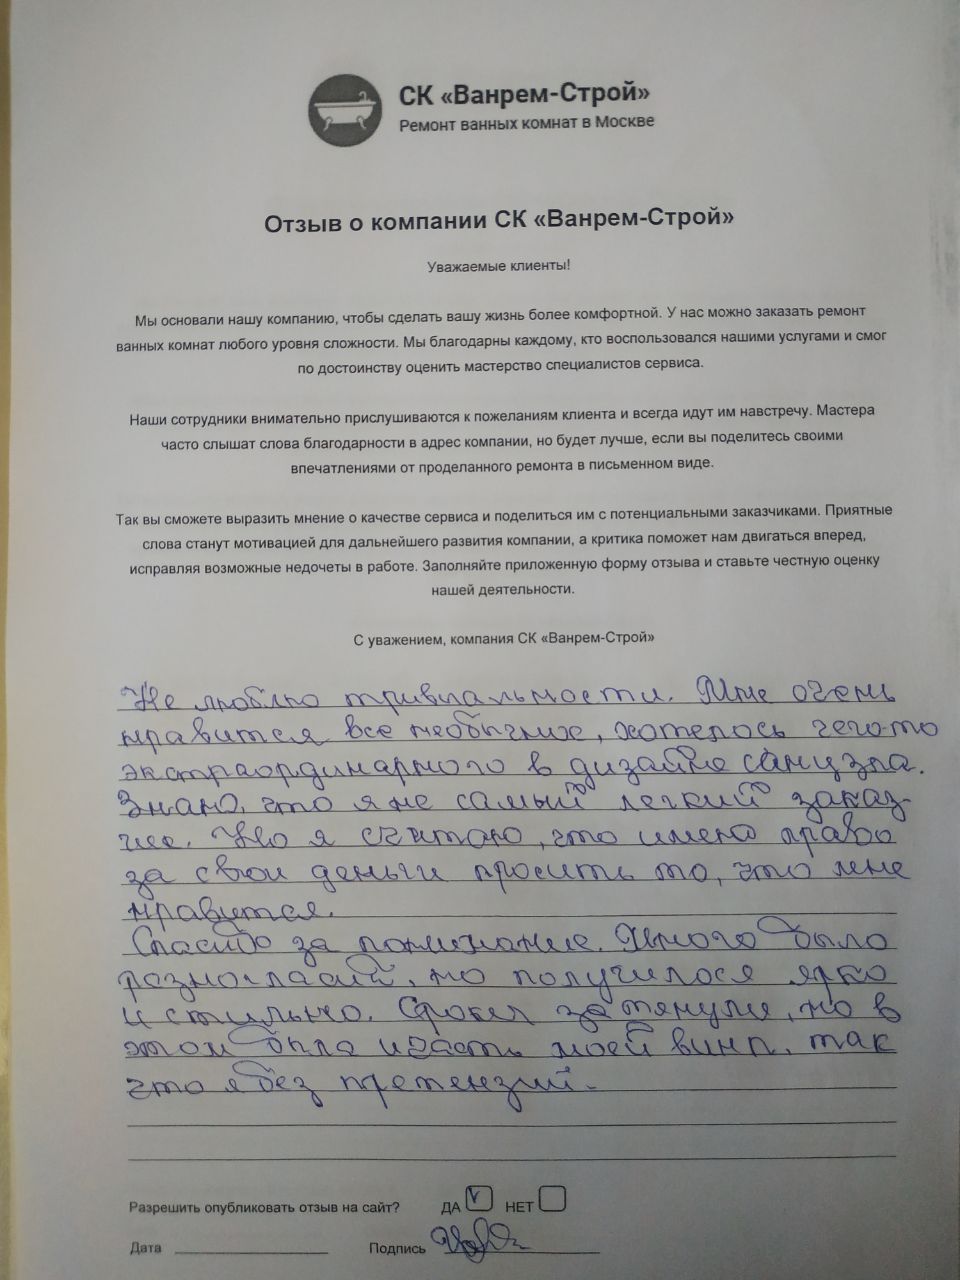 СК «Ванрем-Строй»
Ремонт ванных комнат в Москве
Отзыв о компании СК «Ванрем-Строй»
Уважаемые клиенты!
Мы основали нашу компанию, чтобы сделать вашу жизнь более комфортной. У нас можно заказать ремонт
ванных комнат любого уровня сложности. Мы благодарны каждому, кто воспользовался нашими услугами и смог
по достоинству оценить мастерство специалистов сервиса.
Наши сотрудники внимательно прислушиваются к пожеланиям клиента и всегда идут им навстречу. Мастера
часто слышат слова благодарности в адрес компании, но будет лучше, если вы поделитесь своими
впечатлениями от проделанного ремонта в письменном виде.
Так вы сможете выразить мнение о качестве сервиса и поделиться им с потенциальными заказчиками. Приятные
слова станут мотивацией для дальнейшего развития компании, а критика поможет нам двигаться вперед,
исправляя возможные недочеты в работе. Заполняйте приложенную форму отзыва и ставьте честную оценку
нашей деятельности.
С уважением, компания СК «Ванрем-Строй»
Не люблю тривиальности. Мне очень
нравится все необычное, хотелось чего-то
экстраординарного в дизайне санузла.
Знаю, что я не самый легкий заказ-
чик. Но я считаю, что имею право
за свои деньги просить то, что мне
нравится.
Спасибо за понимание. Много было
разногласий, но получилось ярко
и стильно. Сроки затянули, но в
этом была и часть моей вины, так
что я без претензий.
Разрешить опубликовать отзыв на сайт? ДА НЕТ
Дата Подпись